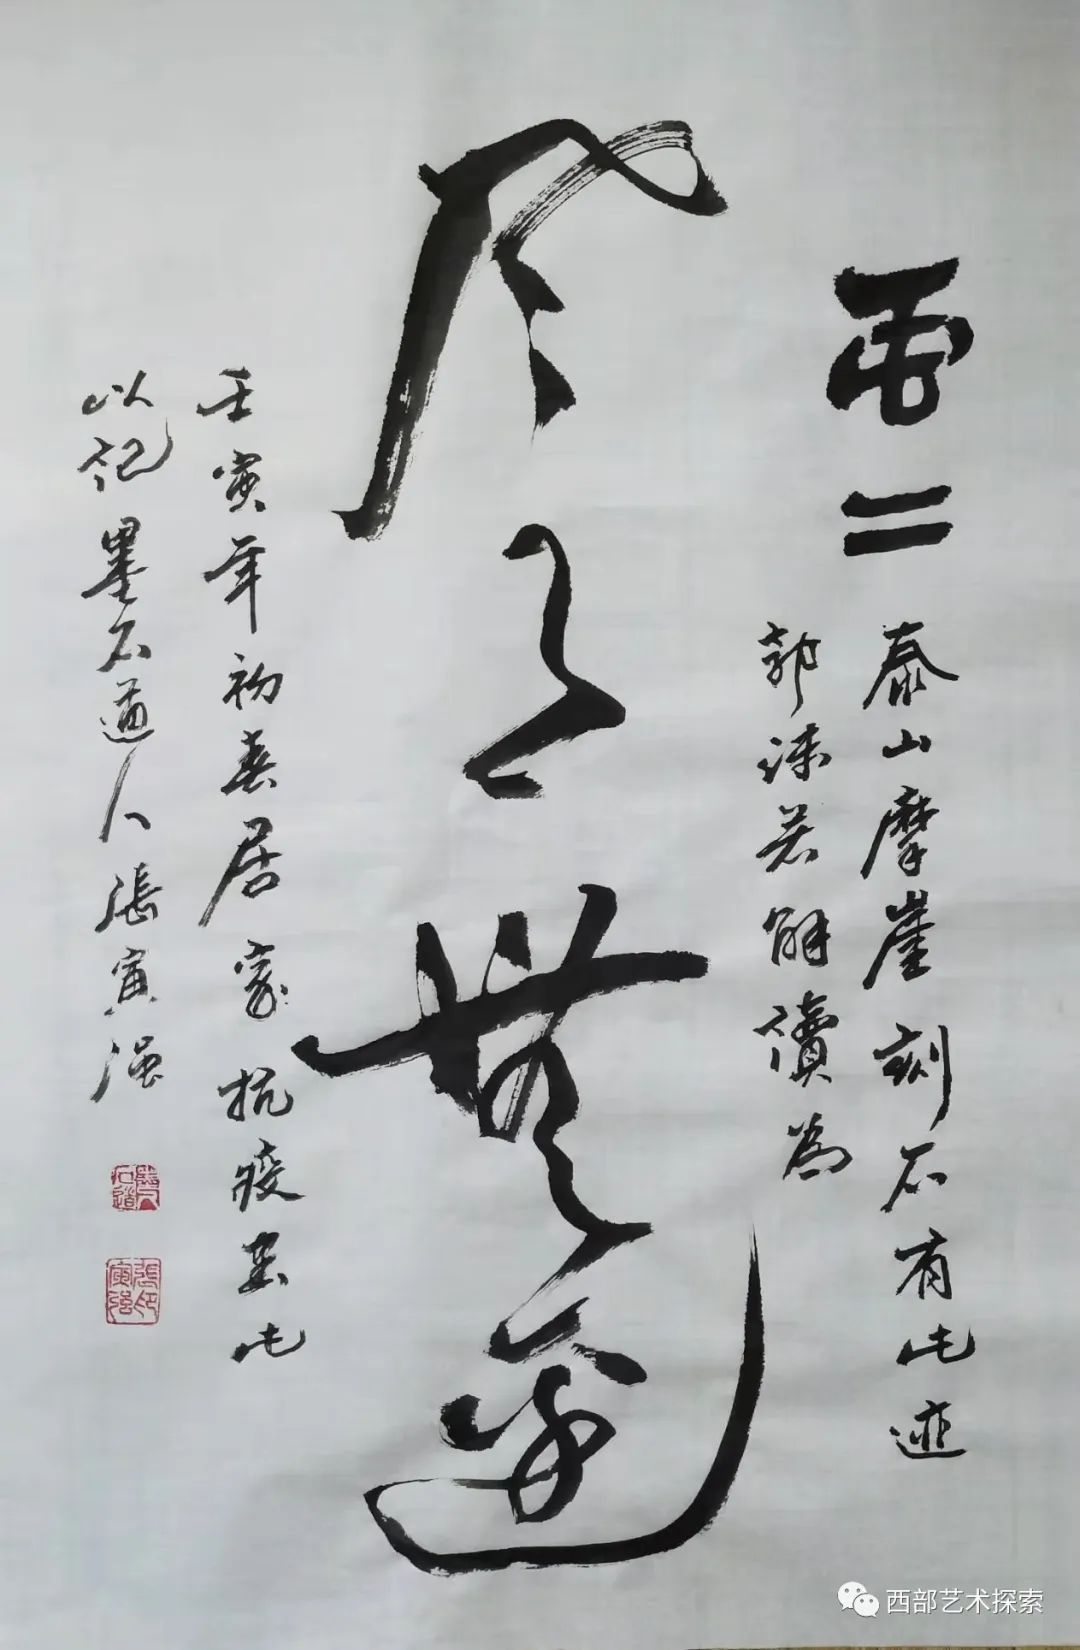 虫二
泰山摩崖刻石有此迹
郭沫若解讀為
风月無邊
壬寅年初春居家抗疫書此
以記墨石道人張寅强
西部艺术探索